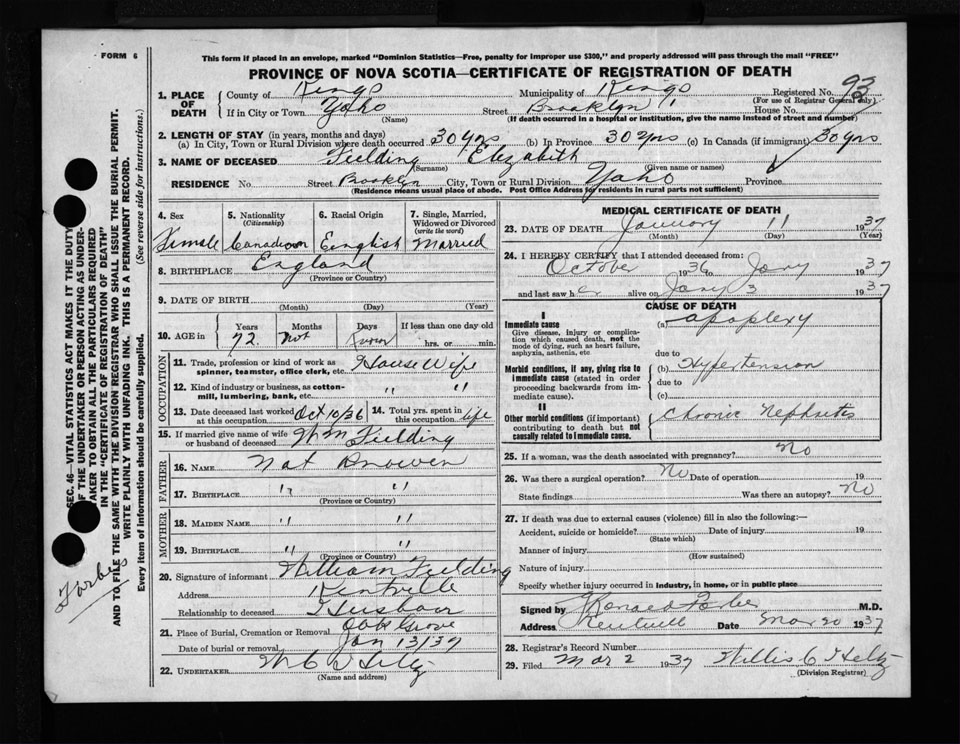 FORM 6
This form if placed in an envelope, marked "Dominion Statistics—Free, penalty for improper use $300," and properly addressed will pass through the mail "FREE"
PROVINCE OF NOVA SCOTIA—CERTIFICATE OF REGISTRATION OF DEATH
1. PLACE OF DEATH County of Kings Municipality of Kings Registered No. 93
(For use of Registrar General only)
If in City or Town Yoho Street Brooklyn House No.
(Name) (If death occurred in a hospital or institution, give the name instead of street and number)
2. LENGTH OF STAY (in years, months and days)
(a) In City, Town or Rural Division where death occurred 30 yrs (b) In Province 30 yrs (c) In Canada (if immigrant) 30 yrs
3. NAME OF DECEASED Fielding Elizabeth
(Surname) (Given name or names)
RESIDENCE No. Street Brooklyn City, Town or Rural Division Yoho Province
(Residence means usual place of abode. Post Office Address for residents in rural parts not sufficient)
4. Sex 5. Nationality (Citizenship) 6. Racial Origin 7. Single, Married, Widowed or Divorced (write the word)
Female Canadian English Married
8. BIRTHPLACE England
(Province or Country)
9. DATE OF BIRTH
(Month) (Day) (Year)
10. AGE in Years Months Days If less than one day old
72 Not Known hrs. or min.
OCCUPATION
11. Trade, profession or kind of work as spinner, teamster, office clerk, etc. House Wife
12. Kind of industry or business, as cotton-mill, lumbering, bank, etc. " "
13. Date deceased last worked at this occupation Oct 10/36 14. Total yrs. spent in this occupation life
15. If married give name of wife or husband of deceased Wm Fielding
FATHER
16. NAME Not Known
17. BIRTHPLACE " "
(Province or Country)
MOTHER
18. MAIDEN NAME " "
19. BIRTHPLACE " "
(Province or Country)
20. Signature of informant William Fielding
Address Kentville
Relationship to deceased Husband
21. Place of Burial, Cremation or Removal Oak Grove
Date of burial or removal Jan 13/37
22. UNDERTAKER
(Name and address)
MEDICAL CERTIFICATE OF DEATH
23. DATE OF DEATH January 11 1937
(Month) (Day) (Year)
24. I HEREBY CERTIFY that I attended deceased from:
October 1936 to Jany 1937
and last saw her alive on Jany 3 1937
CAUSE OF DEATH
I
Immediate cause (a) apoplexy
Give disease, injury or complication which caused death, not the mode of dying, such as heart failure, asphyxia, asthenia, etc
due to
Morbid conditions, if any, giving rise to immediate cause (stated in order proceeding backwards from immediate cause). (b) Hypertension
due to
(c)
II
Other morbid conditions (if important) contributing to death but not causally related to immediate cause. Chronic Nephritis
25. If a woman, was the death associated with pregnancy? No
26. Was there a surgical operation? No Date of operation 19
State findings Was there an autopsy? No
27. If death was due to external causes (violence) fill in also the following:—
Accident, suicide or homicide? Date of injury 19
(State which)
Manner of injury
(How sustained)
Nature of injury
Specify whether injury occurred in industry, in home, or in public place
Signed by Ronald Forbes M.D.
Address Kentville Date Mar 20 1937
28. Registrar's Record Number
29. Filed Mar 2 1937 Willis C
(Division Registrar)
SEC. 46—VITAL STATISTICS ACT MAKES IT THE DUTY OF THE UNDERTAKER OR PERSON ACTING AS UNDERTAKER TO OBTAIN ALL THE PARTICULARS REQUIRED IN THE "CERTIFICATE OF REGISTRATION OF DEATH" AND TO FILE THE SAME WITH THE DIVISION REGISTRAR WHO SHALL ISSUE THE BURIAL PERMIT.
WRITE PLAINLY WITH UNFADING INK. THIS IS A PERMANENT RECORD.
Every item of information should be carefully supplied. (See reverse side for instructions.)
Forbes